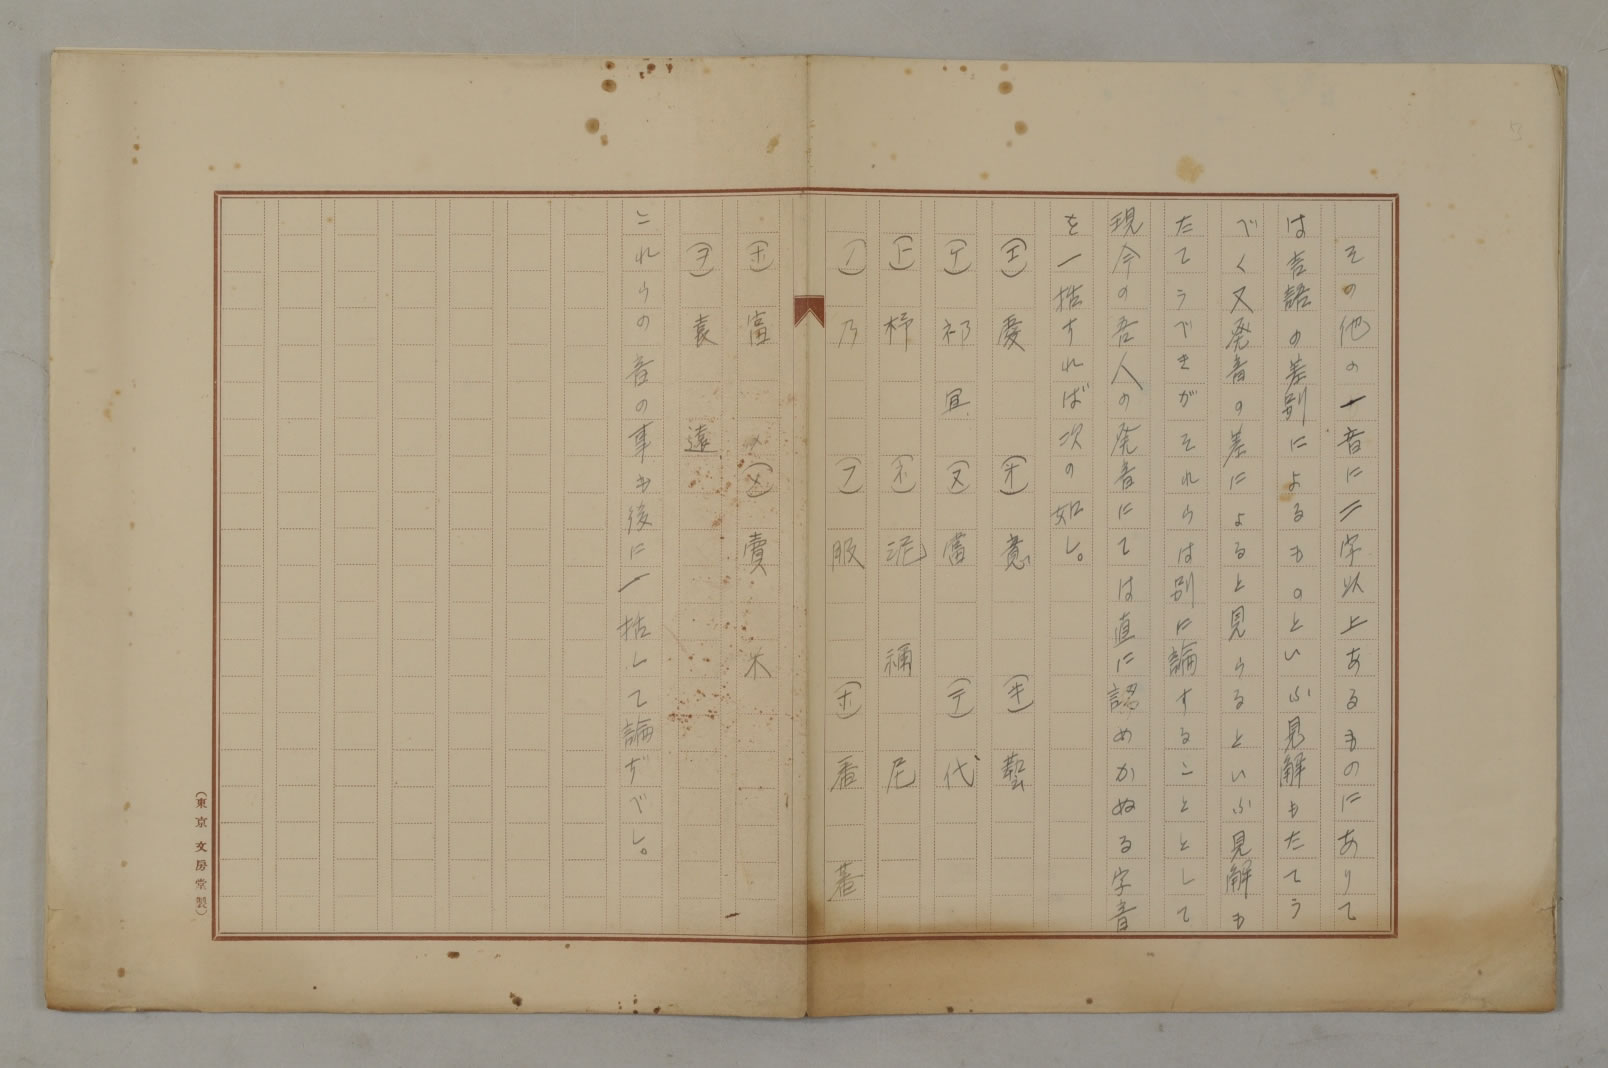 その他の一音に二字以上あるものにありて
は言語の差別によるものといふ見解もたてう
べく又発音の差によると見らるといふ見解も
たてうべきがそれらは別に論することとして
現今の吾人の発音にては直に認めかぬる字音
を一括すれば次の如し。
(エ)愛 (オ)意 (キ)藝
(ケ)祁 宜 (ヌ)蕾 (テ)代
(ト)杼 (ネ)泥 禰 尼
(ノ)乃 (フ)服 (ホ)番 蕃
(ホ)富 (メ)賣 米
(ヲ)袁 遠
これらの音の事も後に一括して論ずべし。
(東京 文房堂製)